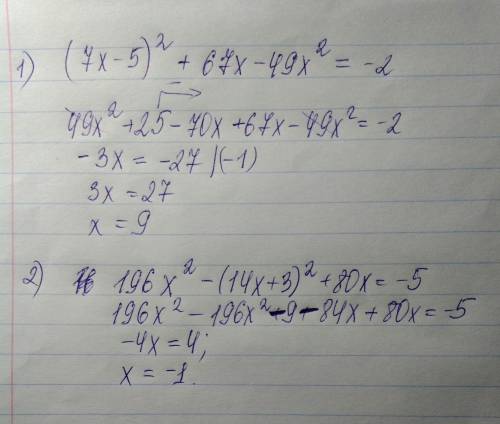 1) (7x-5)² + 67x-49x² = -2
49x² +25-70x+67x-49x² = -2
-3x = -27 |(-1)
3x = 27
x = 9
2) 196x² -(14x+3)² +80x = -5
196x² - 196x² -9-84x+80x = -5
-4x = 4;
x = -1.